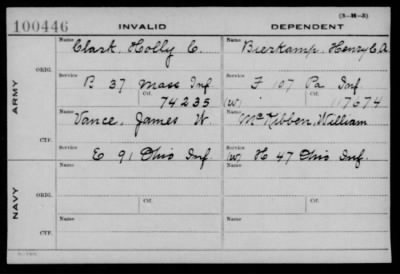 (3-H-3)
100446 INVALID DEPENDENT
Name Clark, Holly C. Name Bierkamp, Henry C.A.
ARMY
ORIG.
Service B 37 Mass Inf. Service F 107 Pa Inf
Ctf. 74235 (W) Ctf. 117674
Name Vance, James W. Name McKibben, William
CTF.
Service E 91 Ohio Inf. Service (W) H 47 Ohio Inf.
NAVY
ORIG.
Name Name
Service Ctf. Service Ctf.
CTF.
Name Name